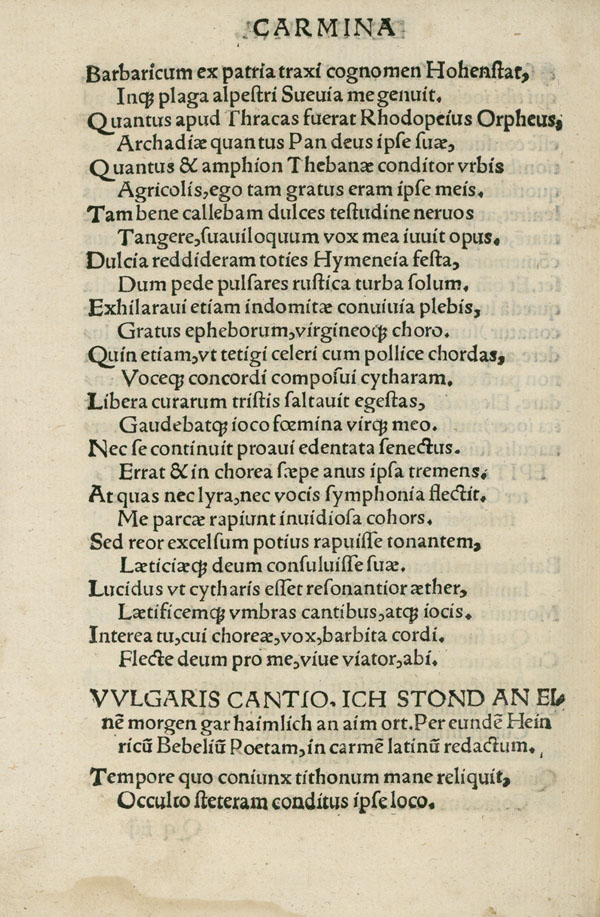 CARMINA
Barbaricum ex patria traxi cognomen Hohenſtat,
Inqꝫ plaga alpeſtri Sueuia me genuit.
Quantus apud Thracas fuerat Rhodopeius Orpheus,
Archadiæ quantus Pan deus ipſe ſuæ,
Quantus & amphion Thebanæ conditor vrbis
Agricolis, ego tam gratus eram ipſe meis.
Tam bene callebam dulces teſtudine neruos
Tangere, ſuauiloquum vox mea iuuit opus.
Dulcia reddideram toties Hymeneia feſta,
Dum pede pulſares ruſtica turba ſolum.
Exhilaraui etiam indomitæ conuiuia plebis,
Gratus epheborum, virgineoqꝫ choro.
Quin etiam, vt tetigi celeri cum pollice chordas,
Voceqꝫ concordi compoſui cytharam.
Libera curarum triſtis ſaltauit egeſtas,
Gaudebatqꝫ ioco fœmina virqꝫ meo.
Nec ſe continuit proaui edentata ſenectus.
Errat & in chorea ſæpe anus ipſa tremens.
At quas nec lyra, nec vocis ſymphonia flectit.
Me parcæ rapiunt inuidioſa cohors.
Sed reor excelſum potius rapuiſſe tonantem,
Læticiæqꝫ deum conſuluiſſe ſuæ.
Lucidus vt cytharis eſſet reſonantior æther,
Lætificemqꝫ vmbras cantibus, atqꝫ iocis.
Interea tu, cui choreæ, vox, barbita cordi.
Flecte deum pro me, viue viator, abi.
VVLGARIS CANTIO. ICH STOND AN EI⸗
nē morgen gar haimlich an aim ort. Per eundē Hein
ricū Bebeliū Poetam, in carmē latinū redactum.
Tempore quo coniunx tithonum mane reliquit,
Occulto ſteteram conditus ipſe loco.